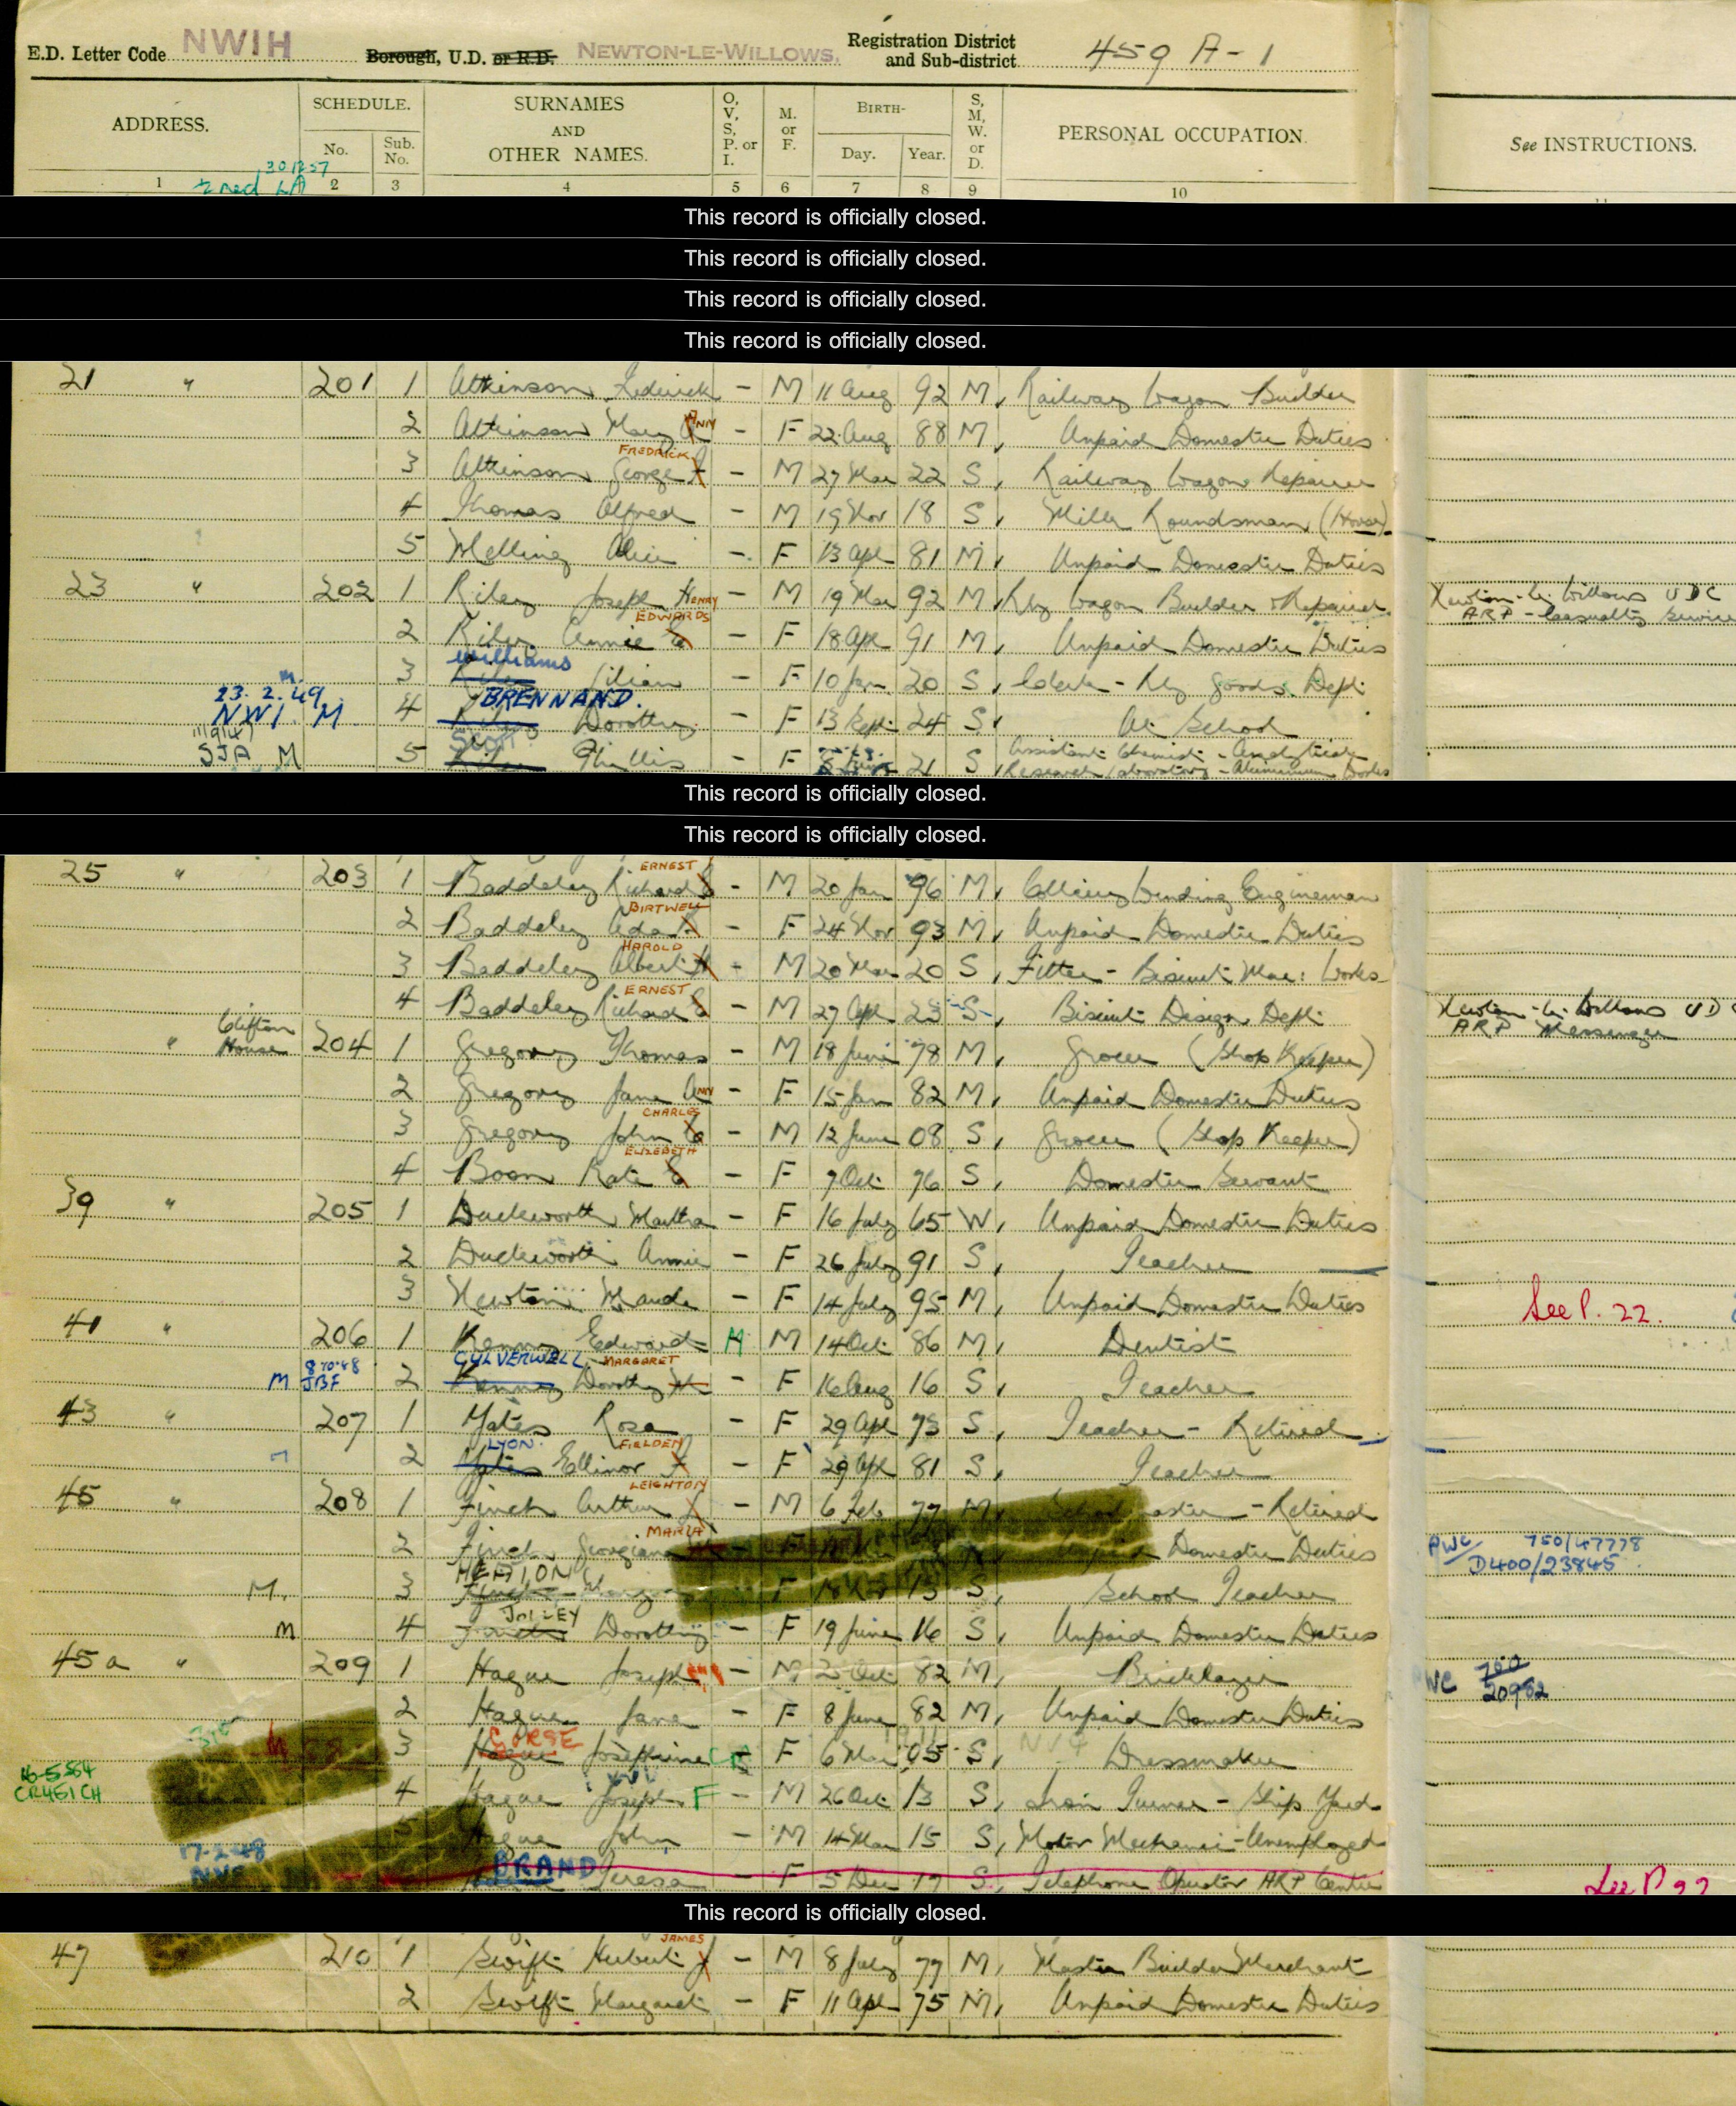 E.D. Letter Code NWIH Borough, U.D. or R.D. NEWTON-LE-WILLOWS. Registration District and Sub-district 459 A-1
ADDRESS. SCHEDULE. No. Sub. No. SURNAMES AND OTHER NAMES. O, V, S, P. or I. M. or F. BIRTH- Day. Year. S, M, W. or D. PERSONAL OCCUPATION. See INSTRUCTIONS.
1 2 3 4 5 6 7 8 9 10
This record is officially closed.
This record is officially closed.
This record is officially closed.
This record is officially closed.
21 " 201 1 Atkinson Frederick - M 11 Aug 92 M Railway Wagon Builder
2 Atkinson Mary ANN - F 22 Aug 88 M Unpaid Domestic Duties
3 Atkinson George F FREDRICK - M 27 Mar 22 S Railway Wagon Repairer
4 Thomas Alfred - M 19 Nov 18 S Milk Roundsman (Horse)
5 Melling Alice - F 13 Apl 81 M Unpaid Domestic Duties
23 " 202 1 Riley Joseph HENRY - M 19 Mar 92 M Rly Wagon Builder & Repairer Newton-le-Willows UDC ARP - Casualty Service
2 Riley Annie E EDWARDS - F 18 Apl 91 M Unpaid Domestic Duties
3 Riley Williams Lilian - F 10 Jan 20 S Clerk - Rly Goods Dept
23.2.49 NWI M 4 Riley BRENNAND. Dorothy - F 13 Sept 24 S At School
SJA M 5 Riley Phyllis - F 21 S Assistant Chemist - Analytical Research Laboratory - Aluminium Works
This record is officially closed.
This record is officially closed.
25 " 203 1 Baddeley Richard E ERNEST - M 20 Jan 96 M Colliery Winding Engineman
2 Baddeley Ada B BIRTWELL - F 24 Nov 93 M Unpaid Domestic Duties
3 Baddeley Albert H HAROLD - M 20 Mar 20 S Fitter - Biscuit Mac: Works
4 Baddeley Richard E ERNEST - M 27 Apl 23 S Biscuit Design Dept Newton-le-Willows UDC ARP Messenger
" Clifton House 204 1 Gregory Thomas - M 18 June 78 M Grocer (Shop Keeper)
2 Gregory Jane ANN - F 15 Jan 82 M Unpaid Domestic Duties
3 Gregory John C CHARLES - M 12 June 08 S Grocer (Shop Keeper)
4 Boon Kate E ELIZEBETH - F 7 Oct 76 S Domestic Servant
39 " 205 1 Duckworth Martha - F 16 July 65 W Unpaid Domestic Duties
2 Duckworth Annie - F 26 July 91 S Teacher
3 Newton Maude - F 14 July 95 M Unpaid Domestic Duties See P. 22.
41 " 206 1 Kenny Edward M M 14 Oct 86 M Dentist
M 8 10 48 JBF 2 Kenny CULVERWELL Dorothy M MARGARET - F 16 Aug 16 S Teacher
43 " 207 1 Yates Rosa - F 29 Apl 73 S Teacher - Retired
2 Yates LYON Ellinor F FIELDEN - F 29 Apl 81 S Teacher
45 " 208 1 Finch Arthur L LEIGHTON - M 6 Feb 77 M Schoolmaster - Retired
2 Finch Georgiana M MARIA - F Unpaid Domestic Duties PWC 750/47778 D400/23845
M. 3 Finch HEATION - F 13 S School Teacher
M 4 Finch JOLLEY Dorothy - F 19 June 16 S Unpaid Domestic Duties
45a " 209 1 Hague Joseph - M Oct 82 M Bricklayer WC 700 20982
2 Hague Jane - F 8 June 82 M Unpaid Domestic Duties
3 Hague GORSE Josephine - F 6 Mar 05 S Dressmaker
16-5 564 CR451CH 4 Hague Joseph F - M 26 Oct 13 S Iron Turner - Ship Yard
5 Hague John - M 14 Mar 15 S Motor Mechanic - Unemployed
17-2-48 BRAND Teresa - F 5 Dec 17 S Telephone Operator ARP Centre See P 22
This record is officially closed.
47 210 1 Swift Hubert J JAMES - M 8 July 77 M Master Builder Merchant
2 Swift Margaret - F 11 Apl 75 M Unpaid Domestic Duties